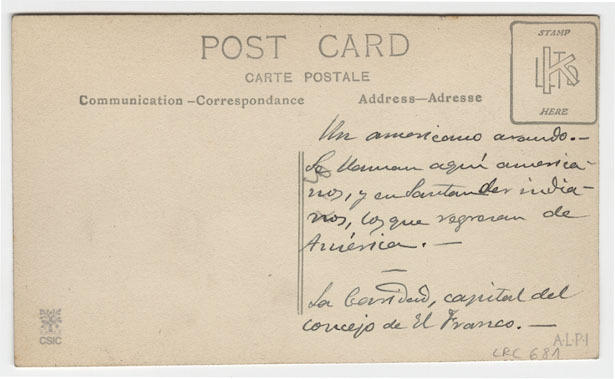 POST CARD
CARTE POSTALE
Communication – Correspondance
Address—Adresse
STAMP
HERE
Un americano arando.–
Se llaman aquí america-
nos, y en Santander india-
nos, los que regresan de
América. —
La Caridad, capital del
concejo de El Franco. —
CSIC
A·L·P·I
CRC 681